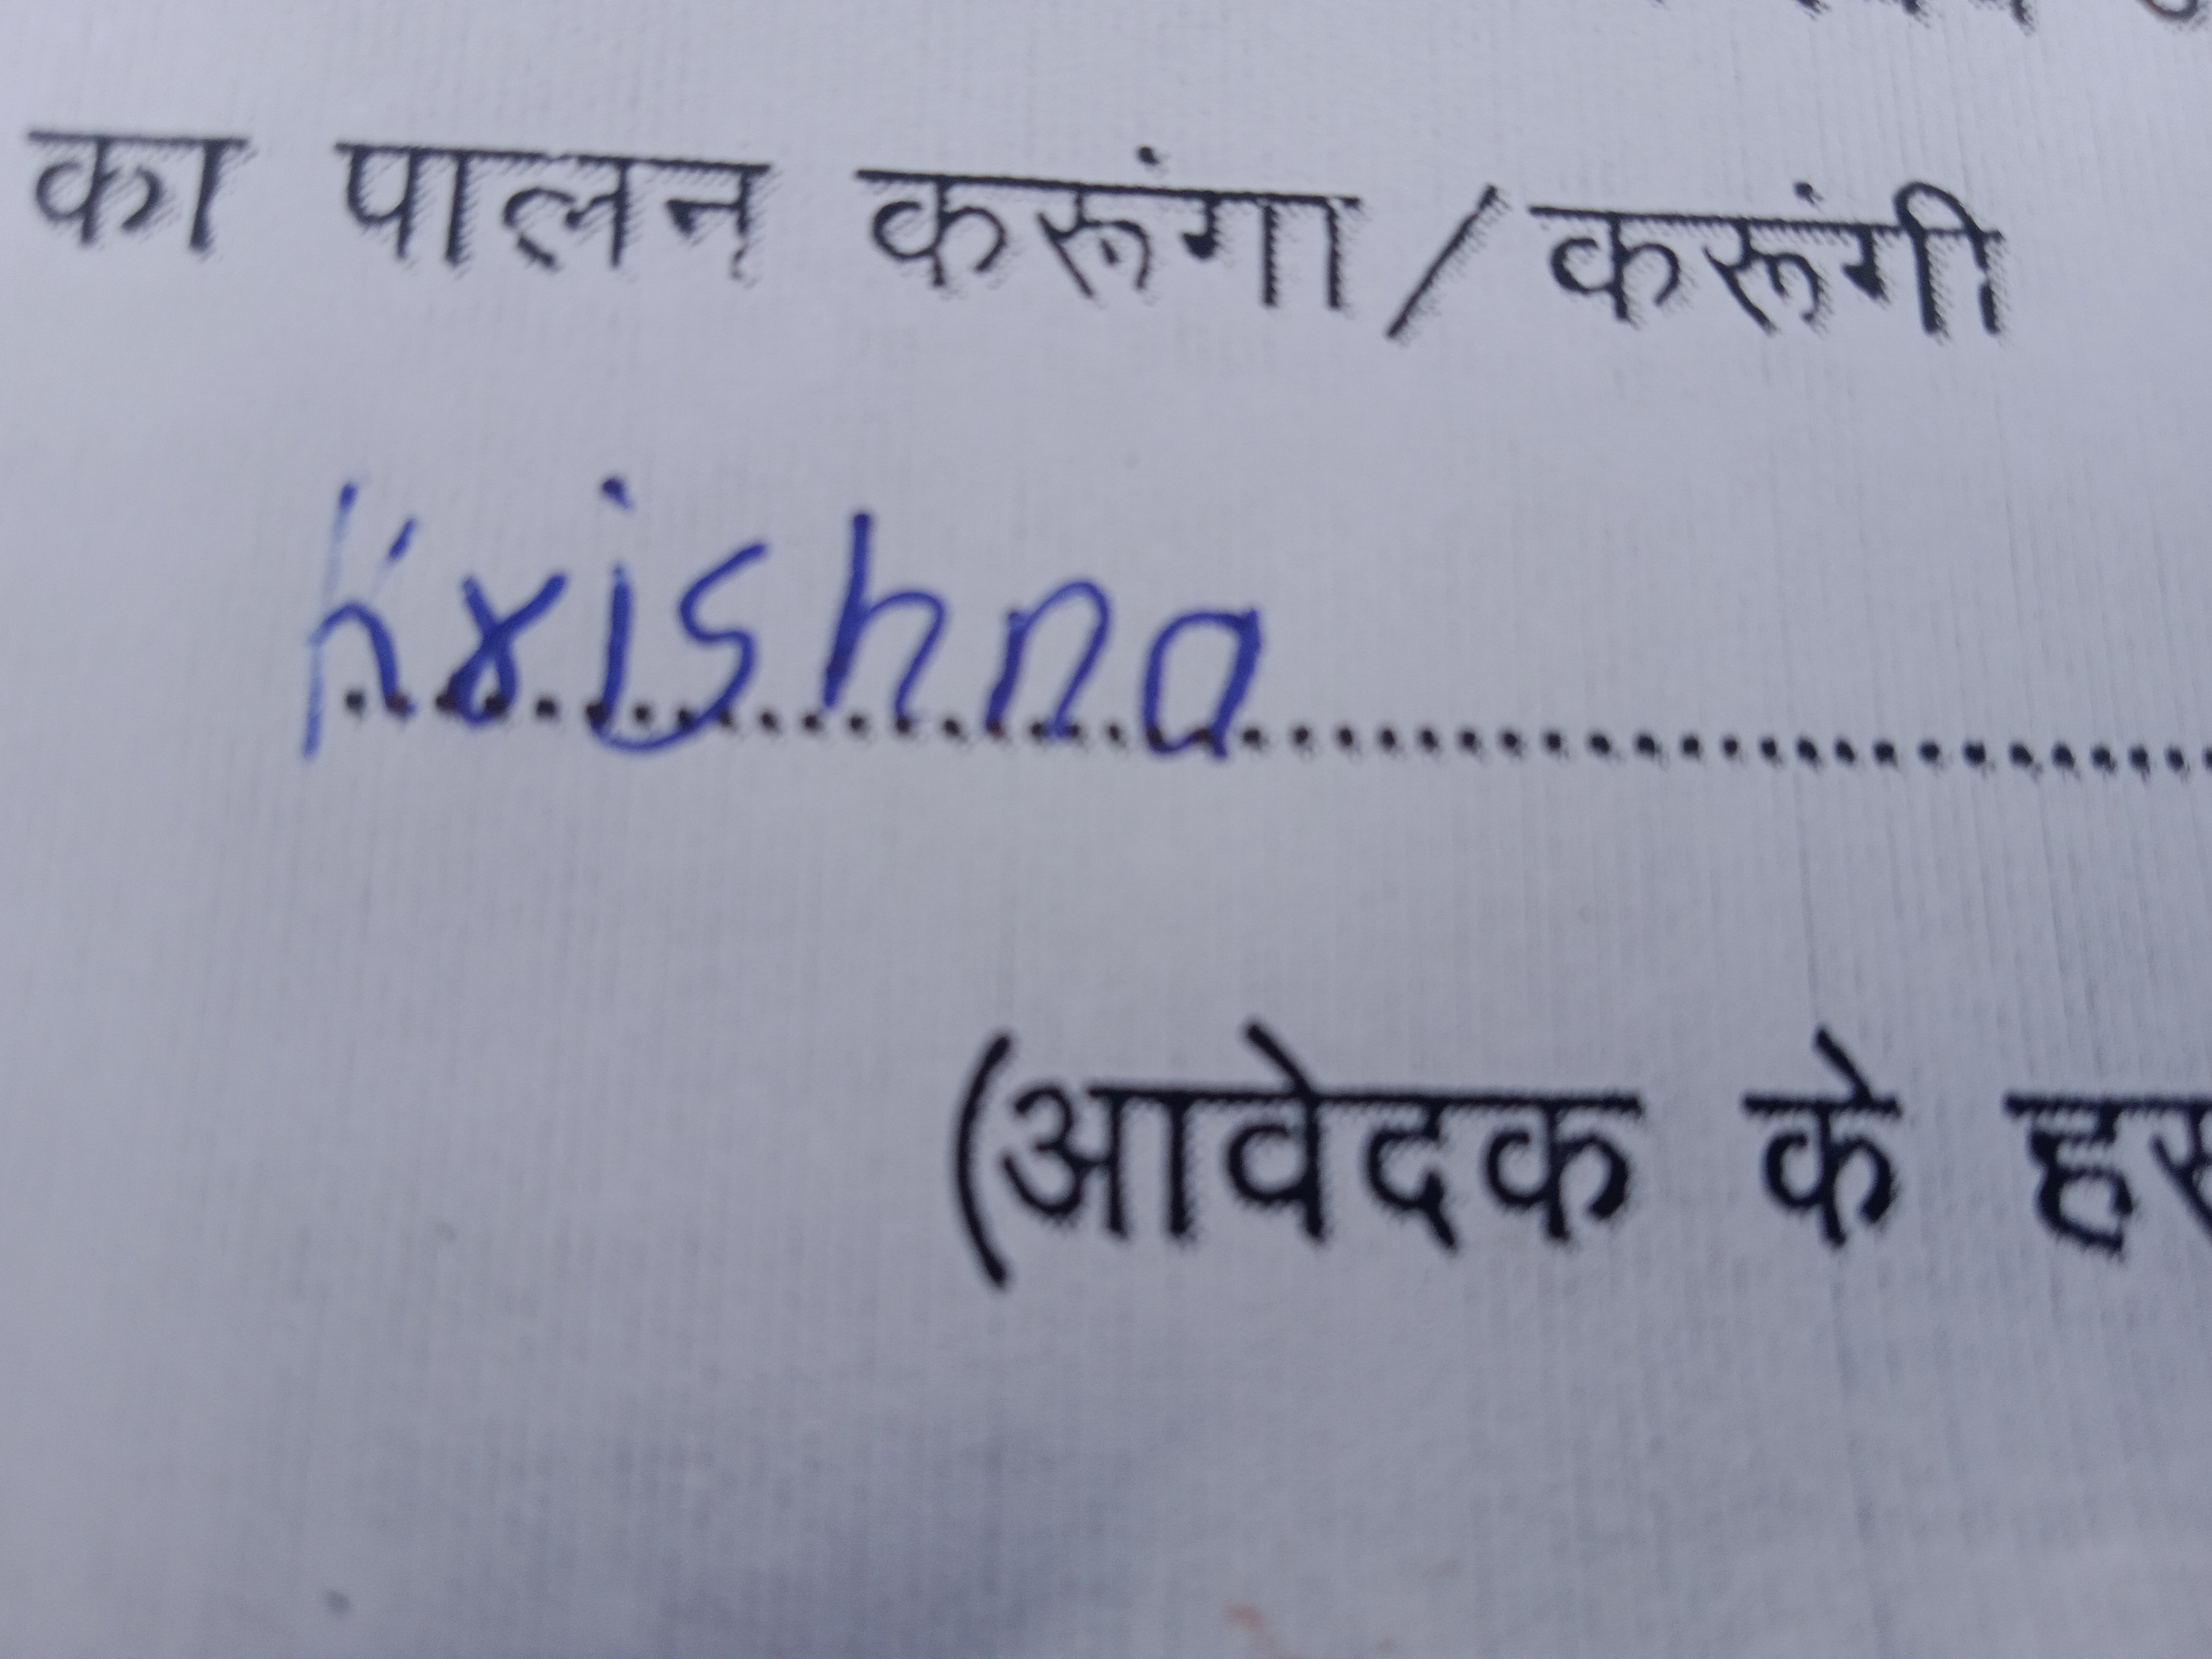 का पालन करूंगा / करूंगी
Krishna
(आवेदक के